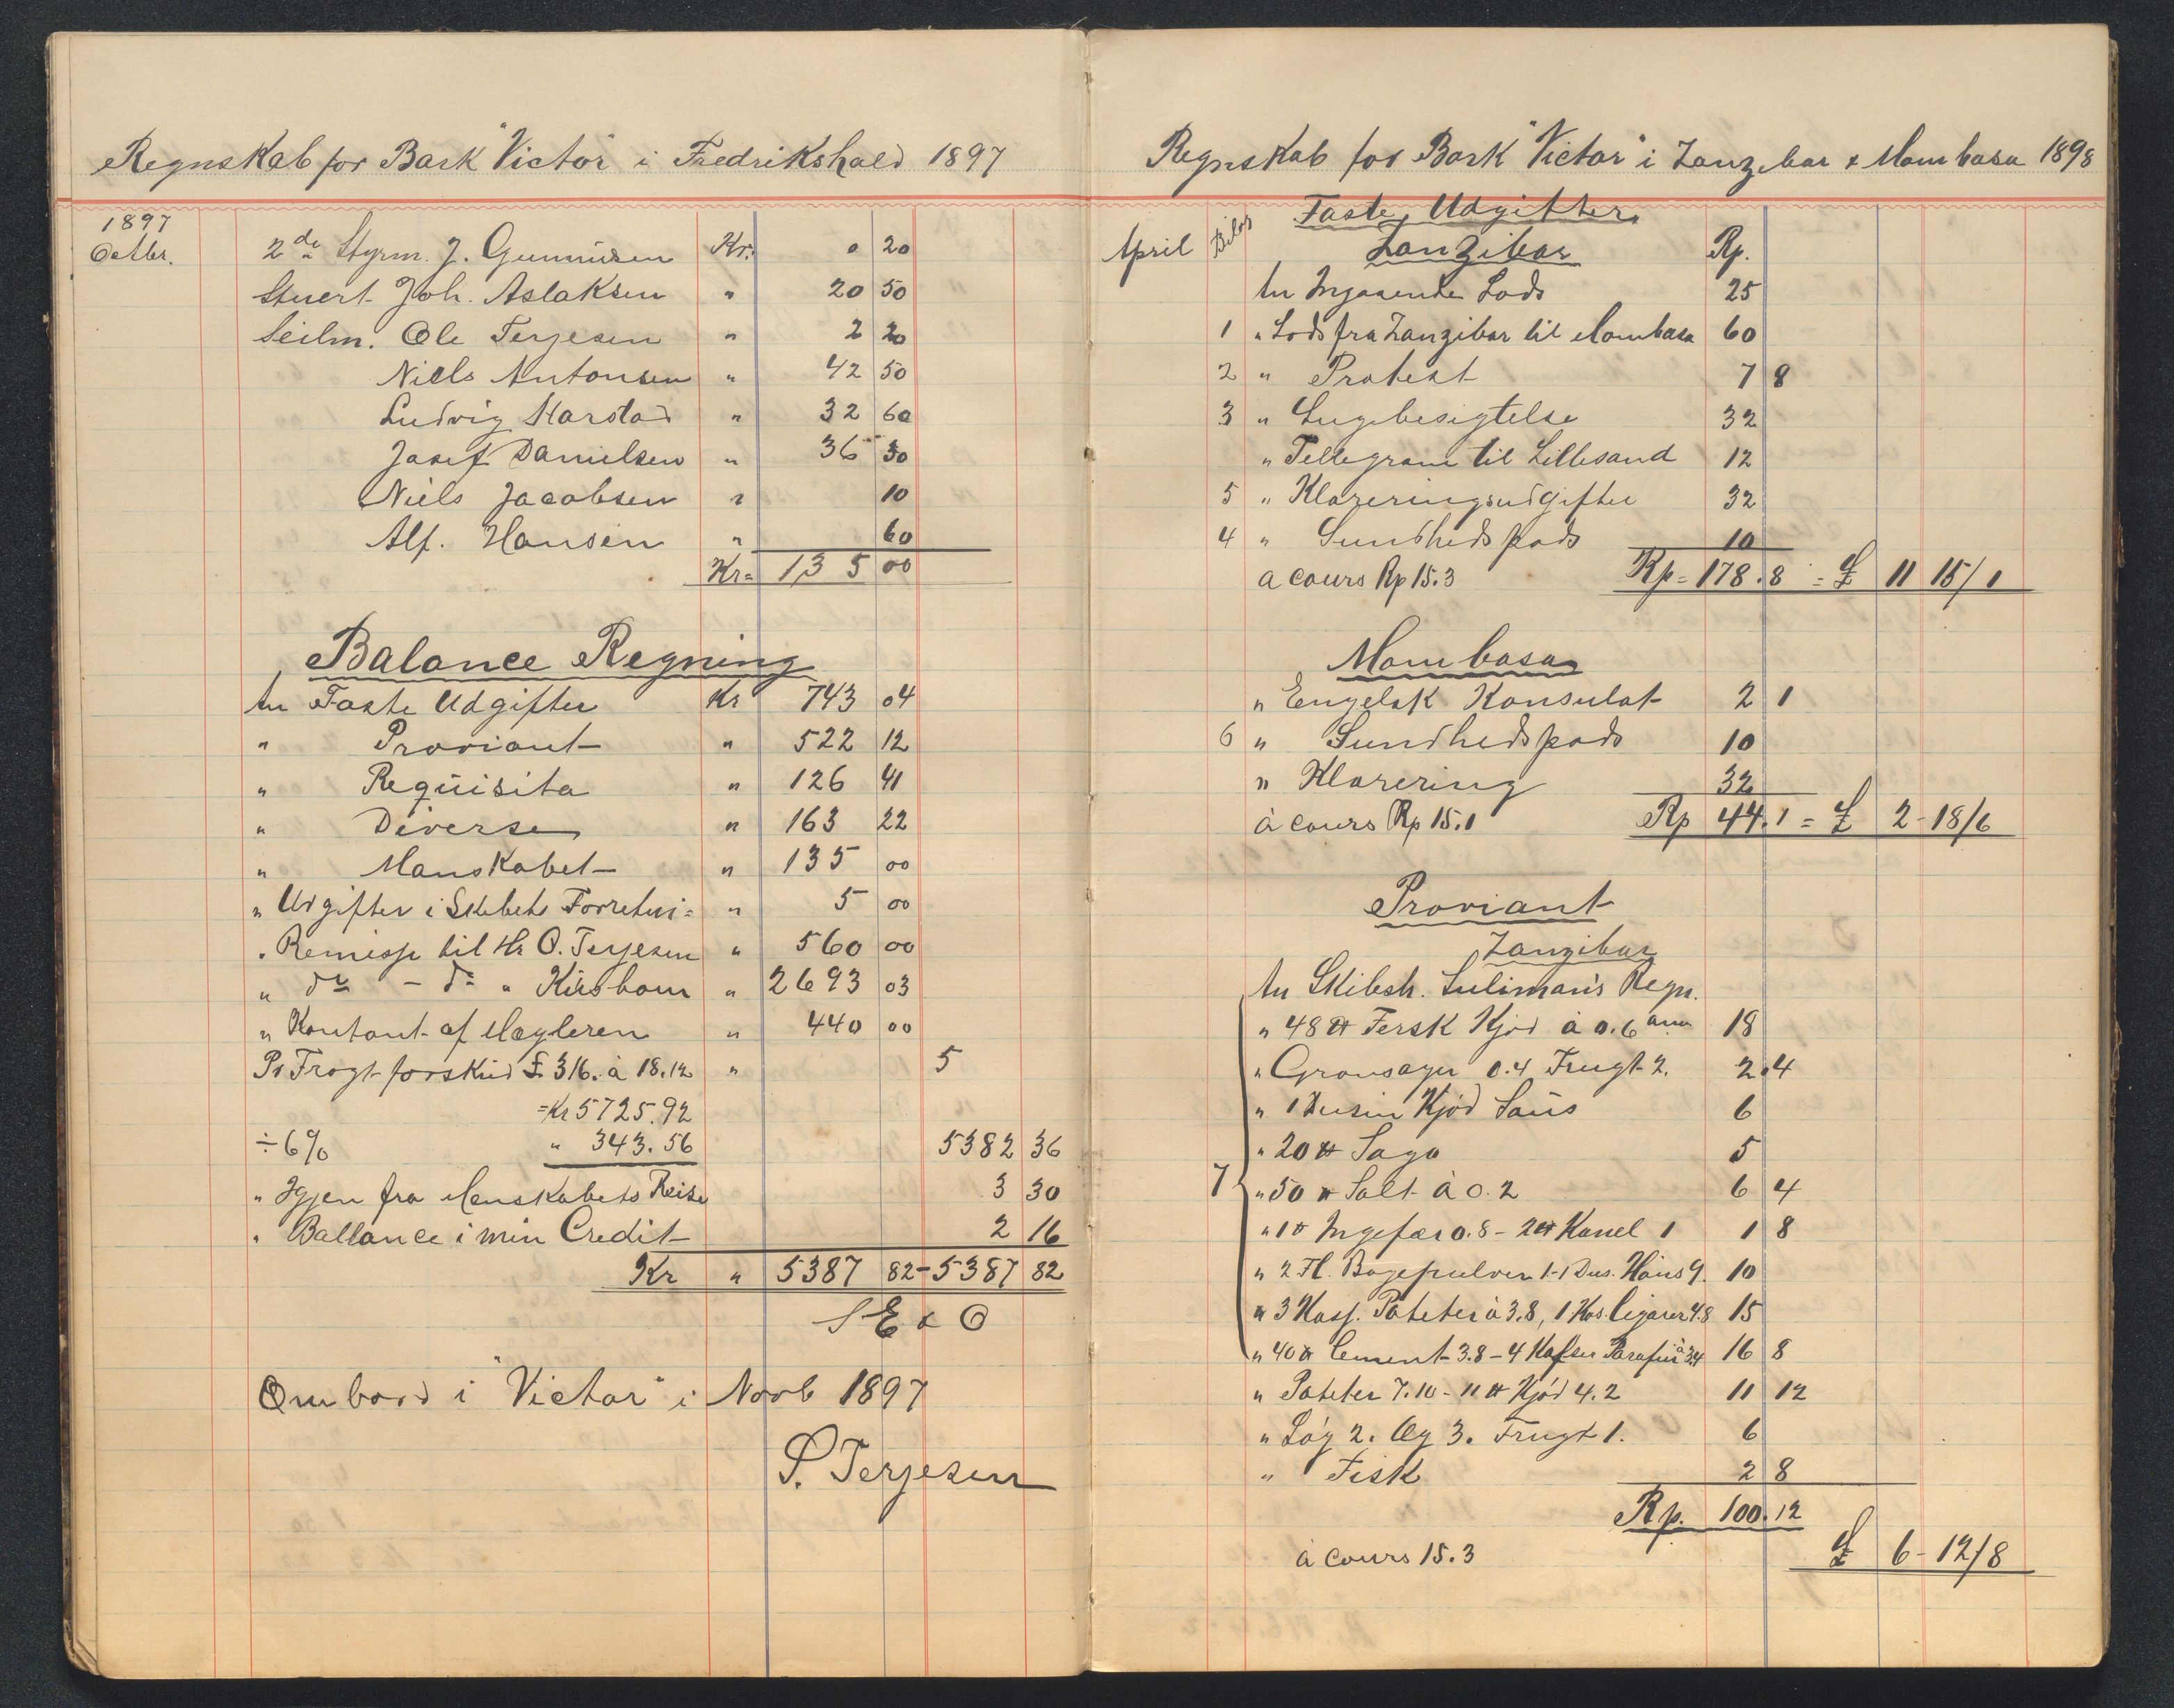 Regnskab for Bark "Victor" i Fredrikshald 1897
1897
Octbr. 2de Styrm. J. Gunnüsen Kr. 0 20
Stuert Joh. Aslaksen " 20 50
Seilm. Ole Terjesen " 2 20
Niels Antonsen " 42 50
Ludvig Harstad " 32 60
Josef Danielsen " 36 30
Niels Jacobsen " 10
Alf. Hansen " 60
Kr= 135 00
Balance Regning
An Faste Udgifter Kr 743 04
" Proviant " 522 12
" Reqüisita " 126 41
" Diverse " 163 22
" Manskabet " 135 00
" Udgifter i Skibets Forretni= " 5 00
" Remisse til Hr O. Terjesen " 560 00
" do - do " Kirsbom " 2693 03
" Kontant af Mægleren " 440 00
Pr Fragt forskud £ 316. à 18.12 " 5
=Kr 5725.92
÷ 6% " 343.56 5382 36
" Igjen fra Manskabets Reise 3 30
" Ballance i min Credit 2 16
Kr " 5387 82 - 5387 82
S E & O
Ombord i "Victor" i Novb 1897
S. Terjesen
Regnskab for Bark "Victor" i Zanzebar & Mombasa 1898
Faste Udgifter
April Bilag Zanzibar Rp.
An Ingaaende Lods 25
1 " Lods fra Zanzibar til Mombasa 60
2 " Protest 7 8
3 " Lugebesigtelse 32
" Tellegram til Lillesand 12
5 " Klareringsudgifter 32
4 " Sundheds pads 10
a cours Rp 15.3 Rp= 178.8 = £ 11 15/1
Mombasa
" Engelsk Konsulat 2 1
6 " Sundheds pads 10
" Klarering 32
à cours Rp 15.1 Rp 44.1 = £ 2-18/6
Proviant
Zanzibar
An Skibsh. Sulimans Regn.
" 48 ℔ Fersk Kjød à 0.6 ana 18
" Grønsager 0.4 Frugt 2. 2.4
" 1 Dusin Kjød Saüs 6
" 20 ℔ Sago 5
7 " 50 ℔ Salt à 0.2 6 4
" 1 ℔ Ingefær 0.8 - 2 ℔ Kanel 1 1 8
" 2 Fl. Bagepulver 1 - 1 Dus. Høns 9. 10
" 3 Kass. Poteter à 3.8, 1 Kas. Cigarer 4.8 15
" 40 ℔ Cement 3.8 - 4 Kasser Parafin à 3.4 16 8
" Poteter 7.10 - 11 ℔ Kjød 4.2 11 12
" Løg 2. Æg 3. Frugt 1. 6
" Fisk 2 8
Rp. 100.12
à cours 15.3 £ 6-12/8